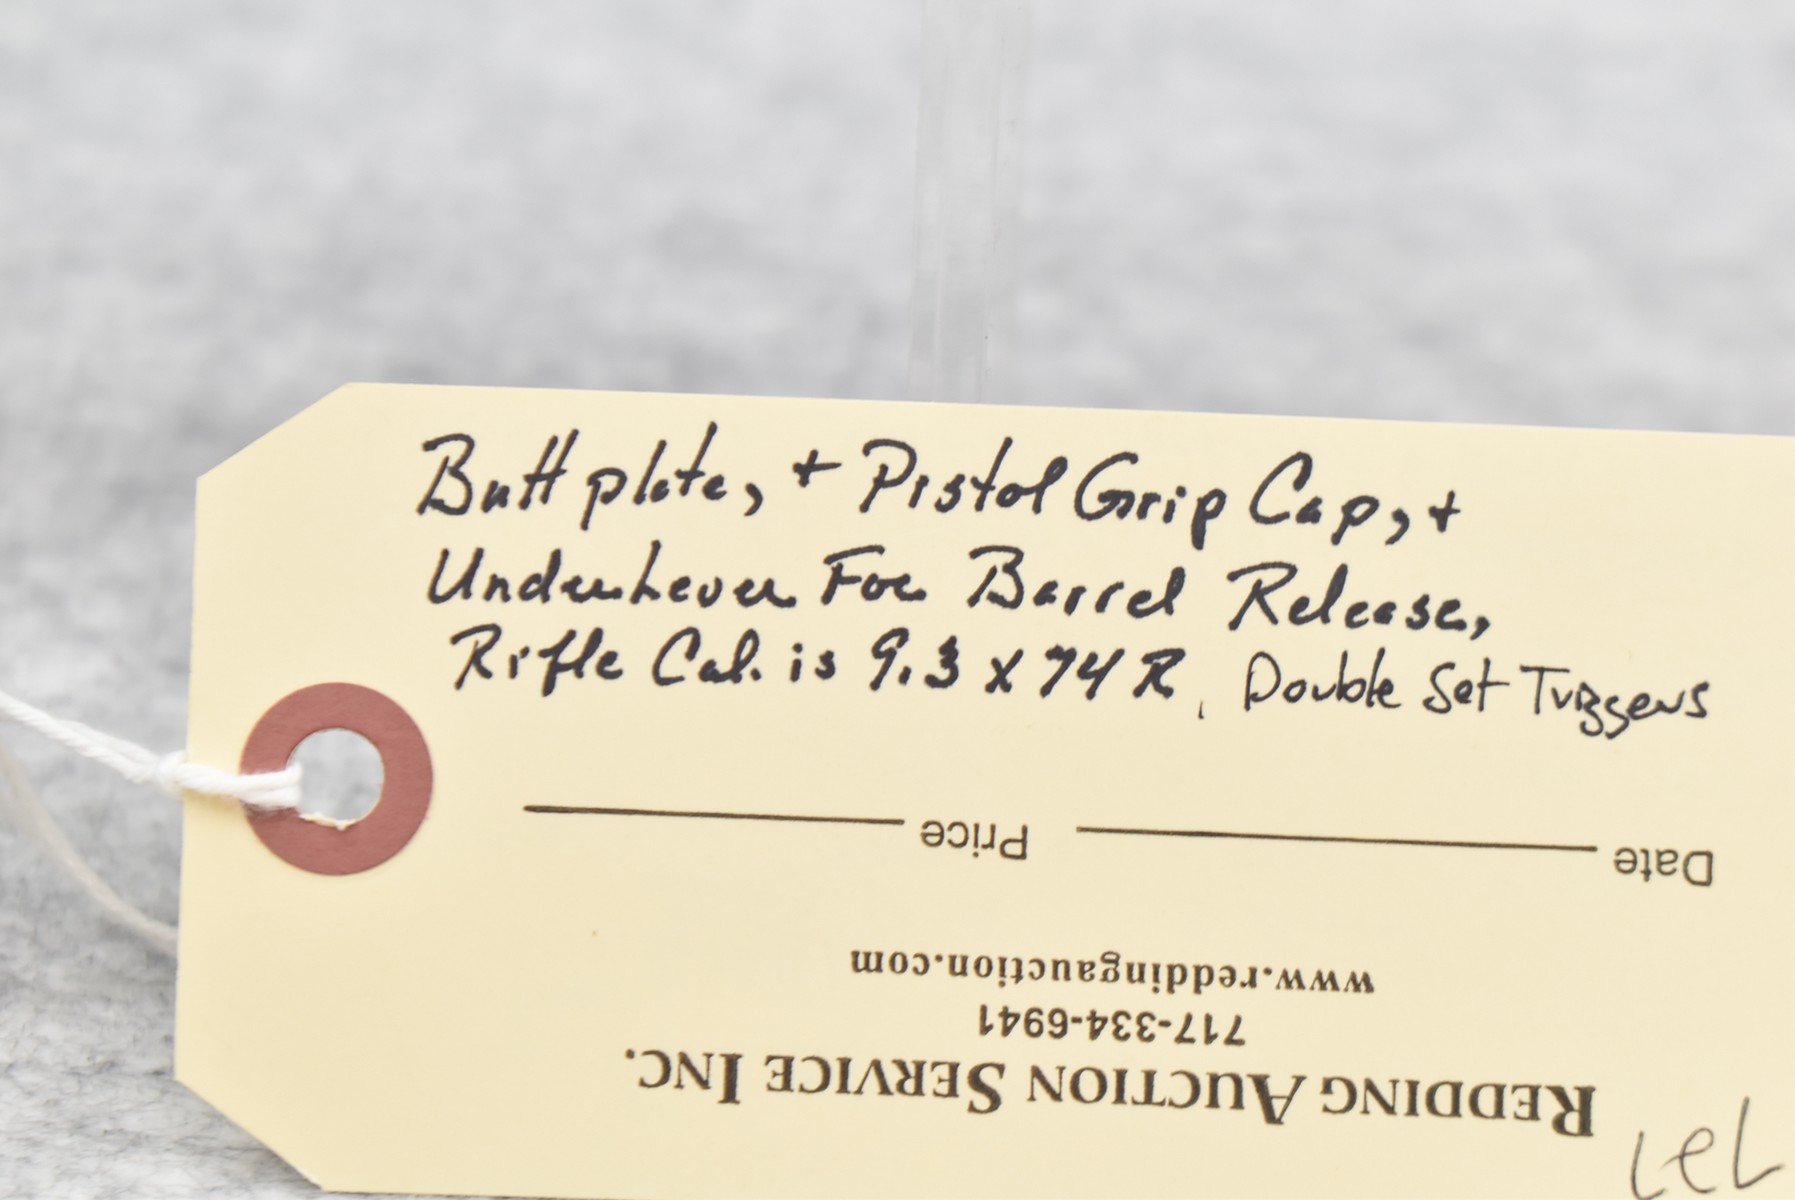 Buttplate, + Pistol Grip Cap, +
UnderLever For Barrel Release,
Rifle Cal. is 9.3 x 74 R, Double Set Triggers
Price Date
www.reddingauction.com
717-334-6941
REDDING AUCTION SERVICE INC.